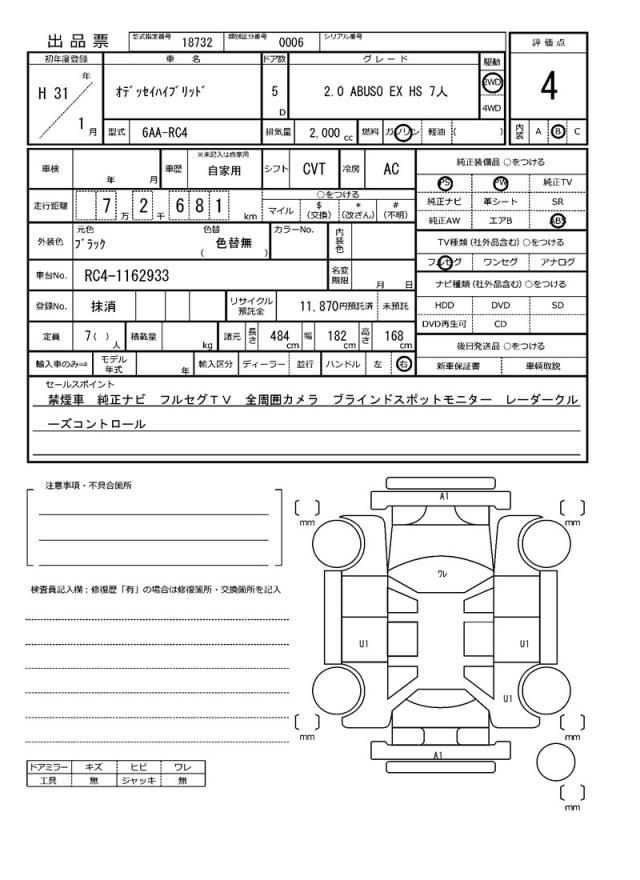 出品票 型式指定番号 18732 類別区分番号 0006 シリアル番号
評価点
4
内装 A B C
初年度登録 車名 ドア数 グレード 駆動
H 31 年 1 月
ｵﾃﾞｯｾｲﾊｲﾌﾞﾘｯﾄﾞ 5 D 2.0 ABUSO EX HS 7人 2WD 4WD
型式 6AA-RC4 排気量 2,000 cc 燃料 ガソリン 軽油 ( )
車検 年 月 車歴 ※未記入は自家用 自家用 シフト CVT 冷房 AC
走行距離 7 万 2 千 6 8 1 km
○をつける
マイル $(交換) *(改ざん) #(不明)
外装色 元色 ﾌﾞﾗｯｸ 色替 ( 色替無 ) カラーNo. 内装色
車台No. RC4-1162933 名変期限 月 日
登録No. 抹消 リサイクル預託金 11,870円預託済 未預託
定員 7( ) 人 積載量 kg 諸元 長さ 484 cm 幅 182 cm 高さ 168 cm
輸入車のみ⇒ モデル年式 年 輸入区分 ディーラー 並行 ハンドル 左 右
純正装備品 ○をつける
PS PW 純正TV
純正ナビ 革シート SR
純正AW エアB ABS
TV種類 (社外品含む) ○をつける
フルセグ ワンセグ アナログ
ナビ種類 (社外品含む) ○をつける
HDD DVD SD
DVD再生可 CD
後日発送品 ○をつける
新車保証書 車輌取説
セールスポイント
禁煙車 純正ナビ フルセグTV 全周囲カメラ ブラインドスポットモニター レーダークル
ーズコントロール
注意事項・不具合箇所
検査員記入欄：修復歴「有」の場合は修復箇所・交換箇所を記入
ドアミラー キズ ヒビ ワレ
工具 無 ジャッキ 無
A1
mm mm
ワレ
U1 U1
U1
mm mm
A1
mm